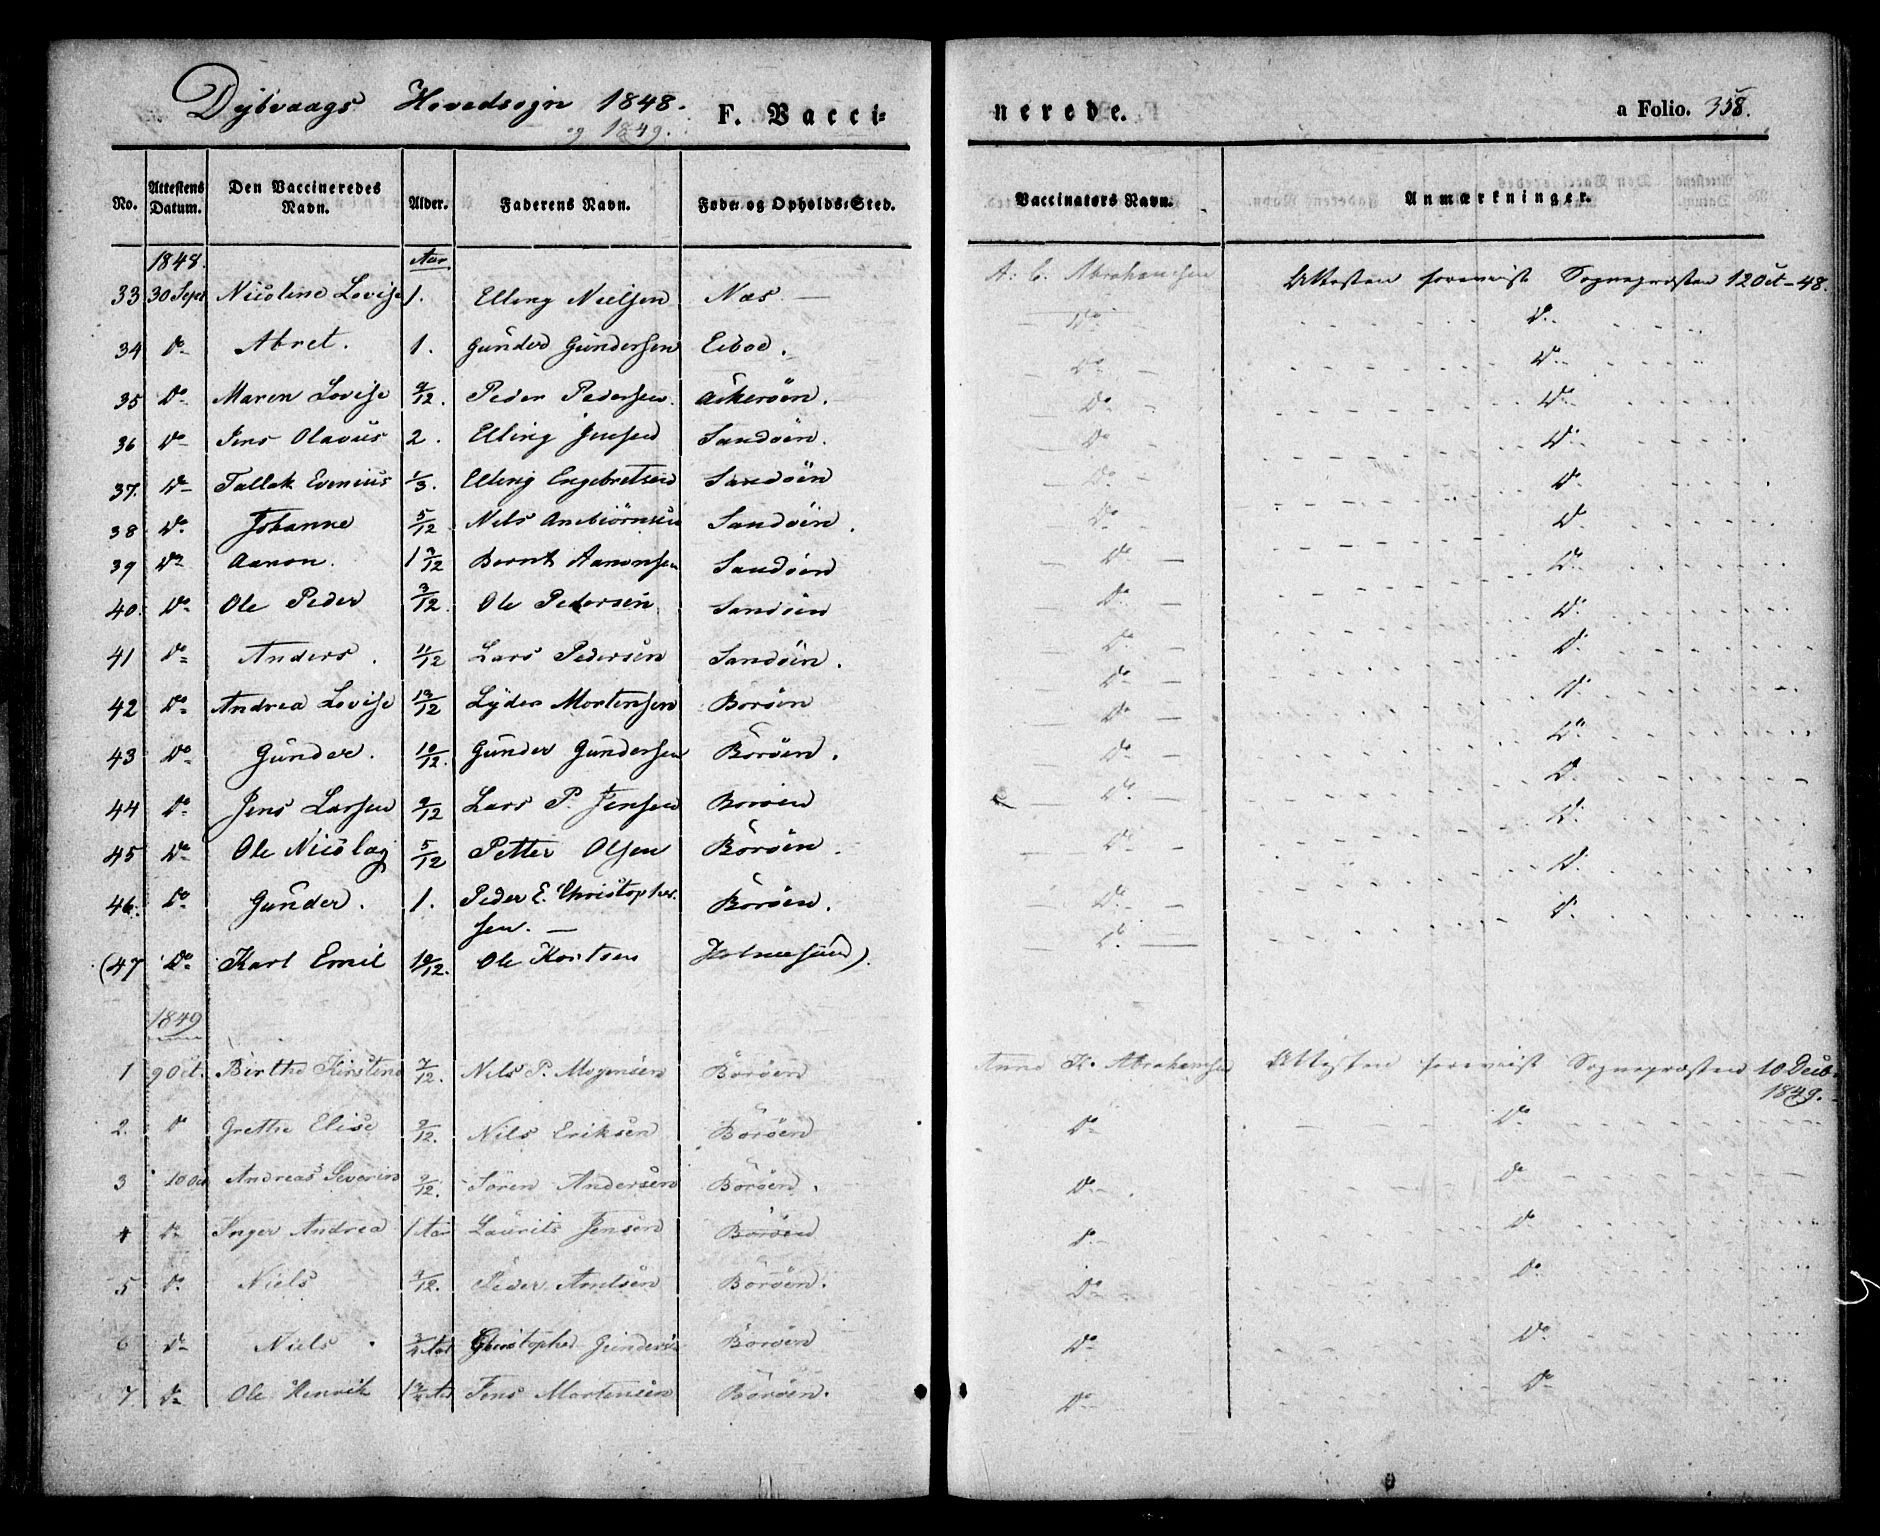 Dybvaags Hovedsogn 1848. F. Vacci- nerede. a Folio. 358.
og 1849.
No. Attestens Datum. Den Vaccineredes Navn. Alder. Faderens Navn. Føde- og Opholds-Sted. Vaccinators Navn. Anmærkninger.
1848. Aar
33 30 Sept Nicoline Lovise 1. Elling Nielsen Næs. — A. C. Abrahamsen Attesten foreviist Sognepræsten 12 Oct - 48.
34 Do Abret. 1. Gunder Gundersen Eiboe. Do Do
35 Do Maren Lovise 9/12. Peder Pedersen. Askerøen. Do Do
36 Do Jens Olavus 2. Elling Jensen Sandøen. Do Do
37. Do Tallak Evenius 1/3. Elling Engebretsen Sandøen Do Do
38 Do Johanne 5/12 Nils Anbiørnsen Sandøen. Do Do
39 Do Aanon. 1 3/12 Bernt Aanonsen Sandøen Do Do
40. Do Ole Peder 3/12. Ole Pedersen Sandøen Do Do
41 Do Anders. 11/12 Lars Pedersen Sandøen. Do Do
42 Do Andrea Lovise 13/12 Lyder Mortensen Borøen Do Do
43 Do Gunder. 10/12. Gunder Gundersen Borøen. Do Do
44 Do Jens Larsen 9/12 Lars P. Jensen Borøen Do Do
45 Do Ole Nicolay 5/12 Petter Olsen Borøen. Do Do
46. Do Gunder. 1. Peder E. Christopher- Borøen. Do Do
sen. —
(47 Do Karl Emil 10/12. Ole Kortsen Holmesund). Do Do
1849
1 9 Oct. Birthe Kirstine 7/12. Nils P. Mogensen Borøen Anne K. Abrahamsen Attesten foreviist Sognepræsten 10 Decb.
1849.
2. Do Grethe Elise 9/12. Nils Eriksen Borøen Do Do
3 10 Oct Andreas Severin 9/12. Søren Andersen Borøen. Do Do
4 Do Inger Andrea 1 Aar Laurits Jensen Borøen Do Do
5 Do Niels 9/12. Peder Antsen Borøen. Do Do
6 Do Niels. 3/4 Aar Christopher Gunders Borøen Do Do
7 Do Ole Henrik 1 3/4 Aar Jens Mortensen Borøen. Do Do